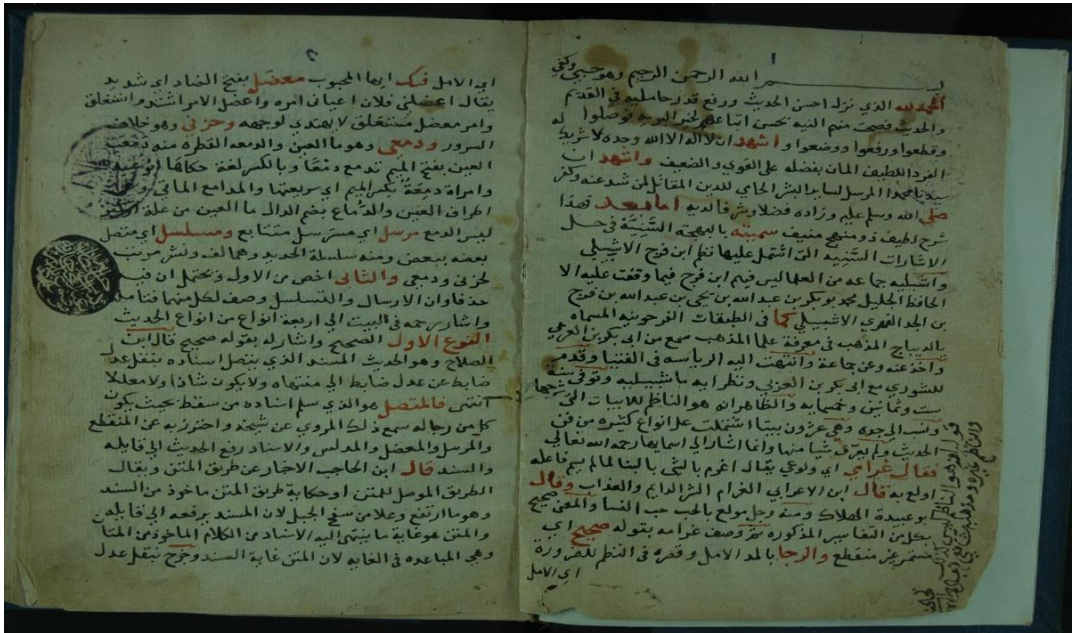 ١
بسم الله الرحمن الرحيم وهو حسبي وكفى
الحمد لله الذي نزل احسن الحديث ورفع قدر حامليه في القديم
والحديث فصحت منهم النية بحسن اتباعهم لخير البريه فوصلوا
وقطعوا ورفعوا ووضعوا واشهد ان لا اله الا الله وحده لا شريك له
الفرد اللطيف المان بفضله على القوي والضعيف واشهد ان
سيدنا محمدا المرسل لساير البشر الحامي للدين المقاتل لمن شذ عنه وكفر
صلى الله وسلم عليه وزاده فضلا وشرفا لديه اما بعد فهذا
شرح لطيف ذو منهج منيف سميته بالبهجة السنية في حل
الاشارات السنيه التي اشتمل عليها نظم ابن فرح الاشبيلي
واشبيليه جماعه من العلما ليس فيهم ابن فرح فيما وقفت عليه الا
الحافظ الجليل محمد ابو بكر بن عبد الله بن يحيى بن عبد الله بن فرح
بن الجد الفهري الاشبيلي كما في الطبقات الفرحونيه المسماه
بالديباج المذهب في معرفة علما المذهب سمع من ابي بكر بن العربي
واخذ عنه وعن جماعة وانتهت اليه الرياسه في الفتيا وقدم
للشورى مع ابي بكر بن العربي ونظرايه باشبيليه وتوفي سنة
ست وثمانين وخمسمايه والظاهر انه هو الناظم للابيات التي
وهي عشرون بيتا اشتملت على انواع كثيره من فن
الحديث ولم يعرف شيا منها وانما اشار الى اسمايها رحمه الله تعالى
فقال غرامي اي ولوعي يقال اغرم بالشي بالبنا لما لم يسم فاعله
اولع به قال ابن الاعرابي الغرام الشر الدايم والعذاب وقال
ابو عبيدة الهلاك ومنه رجل مولع بالحب حب النسا والمعنى صحيح
بكل من التفاسير المذكوره ثم وصف غرامه بقوله صحيح اي
مستمر غير منقطع والرجا بالمد الامل وقصره في النظم للضرورة
اي الامل
٢
اي الامل فيك ايها المحبوب معضل بفتح الضاد اي شديد
يقال اعضلني فلان اعياني امره واعضل الامر اشتد واستغلق
وامر معضل مستغلق لا يهتدي لوجهه وحزني وهو خلاف
السرور ودمعي وهو ما العين والدمعه القطره منه دمعت
العين بفتح الميم تدمع دمعا وبالكسر لغة حكاها ابو عبيد
وامراة دمعة بكسر الميم اي سريعتها والمدامع الماقي وهي
اطراف العين والدماع بضم الدال ما العين من علة او كبر
ليس الدمع مرسل اي مسترسل متتابع ومسلسل اي متصل
بعضه ببعض ومنه سلسلة الحديد وهما لف ونشر مرتب
لحزني ودمعي والثاني اخص من الاول ويحتمل ان فيه
حذفا وان الارسال والتسلسل وصف لكل منهما فتامله
واشار رحمه في البيت الى اربعة انواع من انواع الحديث
النوع الاول الصحيح واشار له بقوله صحيح قال ابن
الصلاح وهو الحديث المسند الذي يتصل اسناده بنقل عدل
ضابط عن عدل ضابط الى منتهاه ولا يكون شاذا ولا معللا
انتهى فالمتصل هو الذي سلم اسناده من سقط بحيث يكون
كل من رجاله سمع ذلك المروي عن شيخه واحترز به عن المنقطع
والمرسل والمعضل والمدلس والاسناد رفع الحديث الى قايله
والسند قال ابن الحاجب الاخبار عن طريق المتن ويقال
الطريق الموصل للمتن او حكاية طريق المتن ماخوذ من السند
وهو ما ارتفع وعلا من سفح الجبل لان المسند يرفعه الى قايله
والمتن هو غاية ما ينتهي اليه الاسناد من الكلام الماخوذ من المتانة
وهي المباعده في الغايه لان المتن غاية السند وخرج بنقل عدل